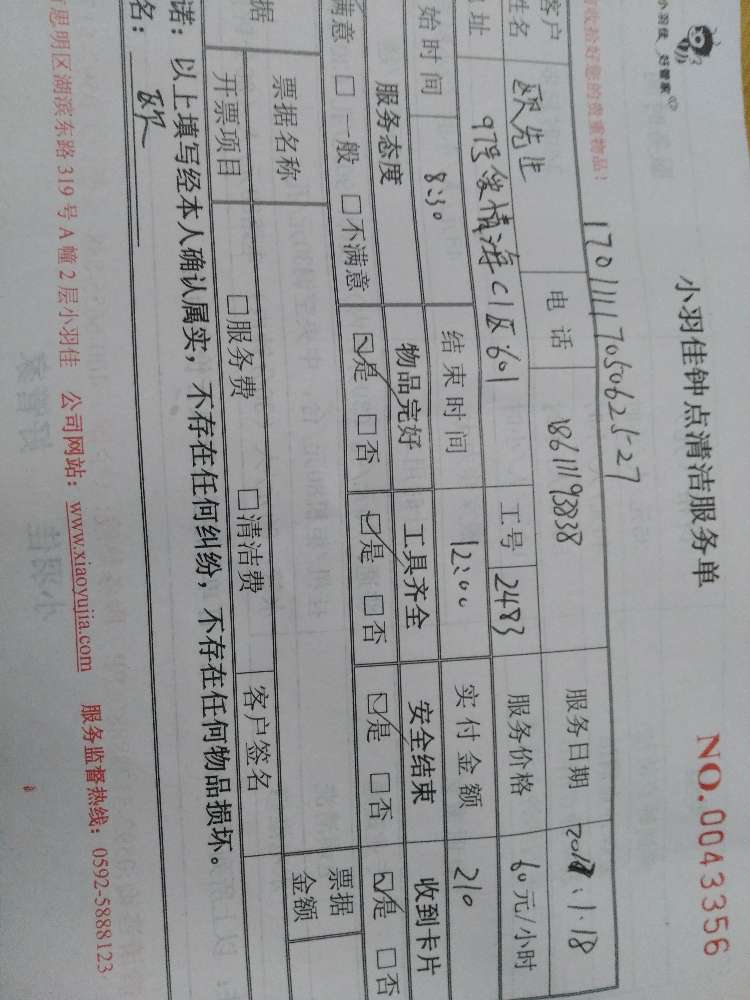 小羽佳 好管家
小羽佳钟点清洁服务单
NO.0043356
收拾好您的贵重物品！
1201111705062527
客户
姓名 欧先生 电话 18611193838 服务日期 1.18
址 97号爱情海C1区601 工号 2483 服务价格 60元/小时
始时间 8:30 结束时间 12:00 实付金额 210
服务态度 物品完好 工具齐全 安全结束 收到卡片
满意 □一般 □不满意 ☑是 □否 ☑是 □否 ☑是 □否 ☑是 □否
据 票据名称 票据金额
开票项目 □服务费 □清洁费 客户签名
诺：以上填写经本人确认属实，不存在任何纠纷，不存在任何物品损坏。
名： 欧
思明区湖滨东路319号A幢2层小羽佳 公司网站：www.xiaoyujia.com 服务监督热线：0592-5888123